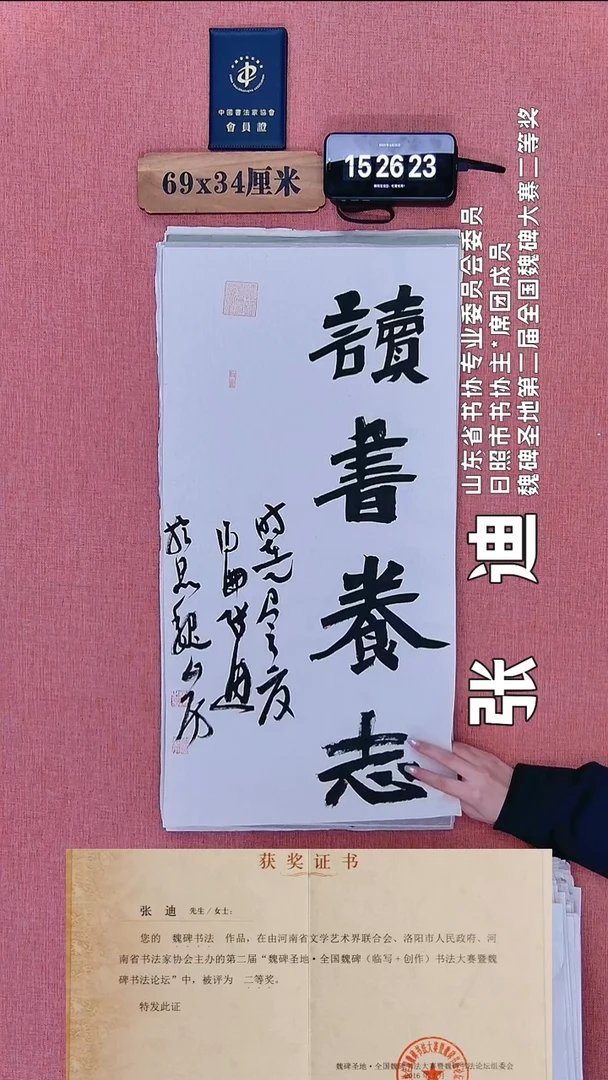 中國書法家協會
會員證
69x34厘米
15 26 23
讀書養志
山东省书协专业委员会委员
日照市书协主*席团成员
魏碑圣地第二届全国魏碑大赛二等奖
张 迪
获奖证书
张 迪 先生/女士：
您的 魏碑书法 作品，在由河南省文学艺术界联合会、洛阳市人民政府、河
南省书法家协会主办的第二届“魏碑圣地·全国魏碑（临写+创作）书法大赛暨魏
碑书法论坛”中，被评为 二等奖。
特发此证
魏碑圣地·全国魏碑书法大赛暨魏碑书法论坛组委会